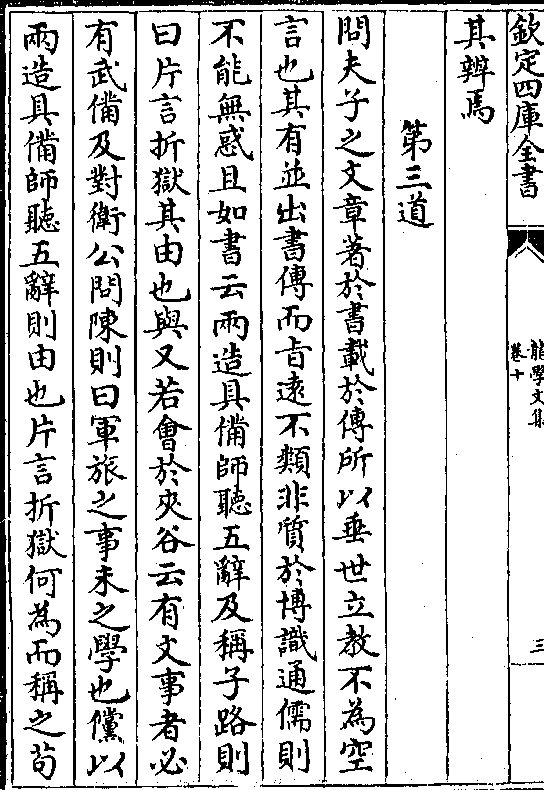 欽定四庫全書
龍學文集
卷十
三
其辨焉
第三道
問夫子之文章著於書載於傳所以垂世立教不為空
言也其有並出書傳而旨遠不類非質於博識通儒則
不能無惑且如書云兩造具備師聽五辭及稱子路則
曰片言折獄其由也與又若會於夾谷云有文事者必
有武備及對衛公問陳則曰軍旅之事未之學也儻以
兩造具備師聽五辭則由也片言折獄何為而稱之苟